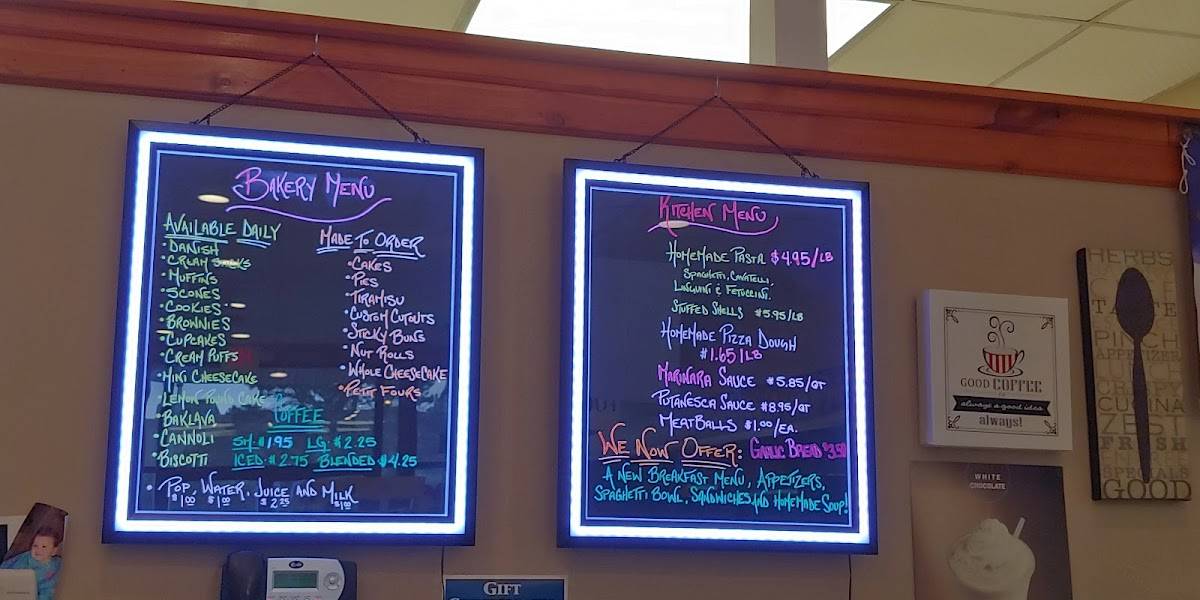 BAKERY MENU
AVAILABLE DAILY
• DANISH
• CREAM STICKS
• MUFFINS
• SCONES
• COOKIES
• BROWNIES
• CUPCAKES
• CREAM PUFFS
• MINI CHEESECAKE
• LEMON POUND CAKE
• BAKLAVA
• CANNOLI
• BISCOTTI
MADE TO ORDER
• CAKES
• PIES
• TIRAMISU
• CUSTOM CUTOUTS
• STICKY BUNS
• NUT ROLLS
• WHOLE CHEESECAKE
• PETIT FOURS
COFFEE
SM. $1.95 LG. $2.25
ICED. $2.75 BLENDED $4.25
• POP, WATER, JUICE AND MILK
$1.00 $1.00 $2.25 $1.00
KITCHEN MENU
HOMEMADE PASTA $4.95/LB
SPAGHETTI, CAVATELLI,
LINGUINI & FETUCCINI.
STUFFED SHELLS $5.95/LB
HOMEMADE PIZZA DOUGH
$1.65/LB
MARINARA SAUCE $5.85/QT
PUTANESCA SAUCE $8.95/QT
MEATBALLS $1.00/EA.
WE NOW OFFER: GARLIC BREAD $3.50
A NEW BREAKFAST MENU, APPETIZERS,
SPAGHETTI BOWL, SANDWICHES, AND HOMEMADE SOUP!
GOOD COFFEE
always a good idea
always!
HERBS
TASTE
PINCH
APPETIZER
CRISPY
CUCINA
ZEST
FRESH
SPECIALS
GOOD
WHITE
CHOCOLATE
GIFT